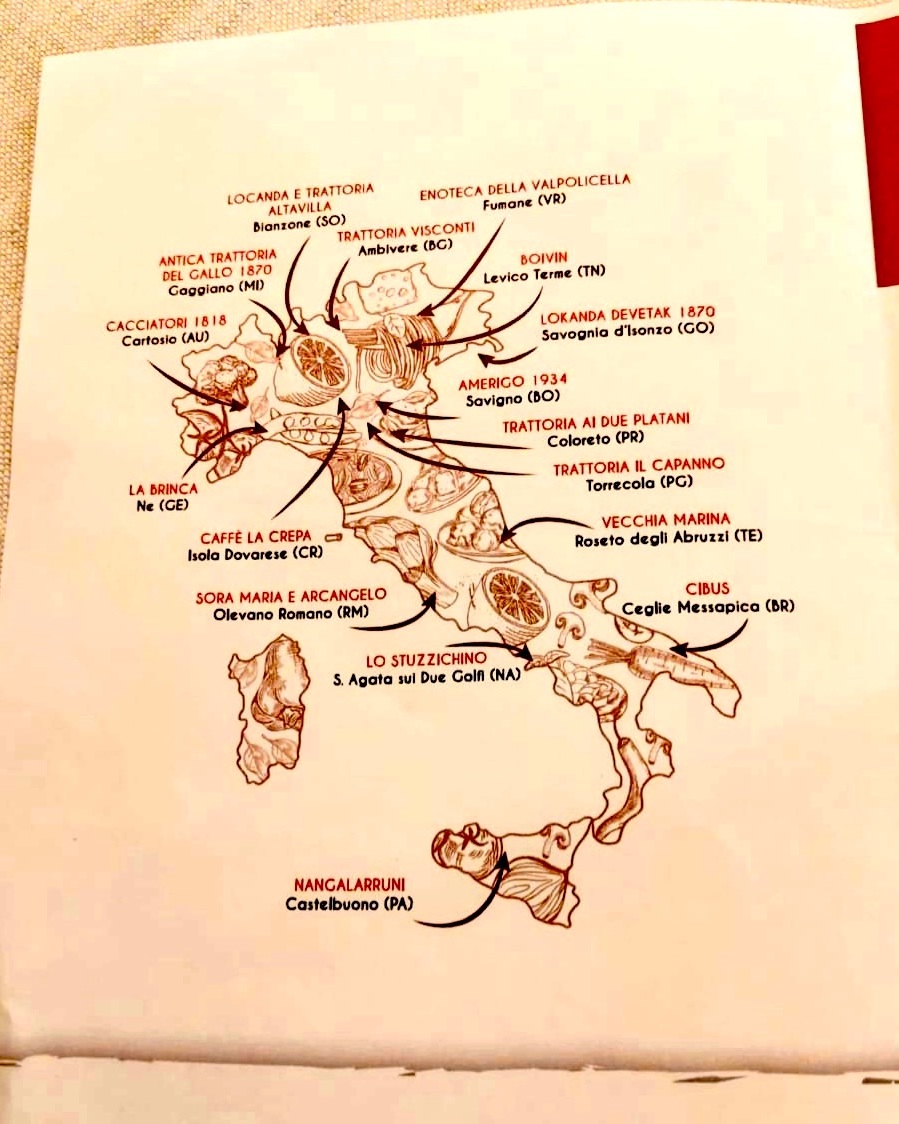 LOCANDA E TRATTORIA
ALTAVILLA
Bianzone (SO)
ENOTECA DELLA VALPOLICELLA
Fumane (VR)
TRATTORIA VISCONTI
Ambivere (BG)
ANTICA TRATTORIA
DEL GALLO 1870
Gaggiano (MI)
BOIVIN
Levico Terme (TN)
CACCIATORI 1818
Cartosio (AU)
LOKANDA DEVETAK 1870
Savognia d'Isonzo (GO)
AMERIGO 1934
Savigno (BO)
TRATTORIA AI DUE PLATANI
Coloreto (PR)
TRATTORIA IL CAPANNO
Torrecola (PG)
LA BRINCA
Ne (GE)
CAFFÈ LA CREPA
Isola Dovarese (CR)
VECCHIA MARINA
Roseto degli Abruzzi (TE)
SORA MARIA E ARCANGELO
Olevano Romano (RM)
CIBUS
Ceglie Messapica (BR)
LO STUZZICHINO
S. Agata sui Due Golfi (NA)
NANGALARRUNI
Castelbuono (PA)